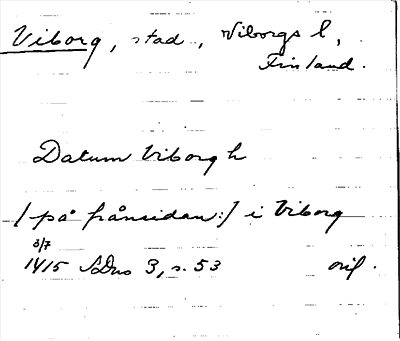 Viborg, stad, Viborgs l,
Finland.
Datum Viborgh
/ på frånsidan:/ i Viborg
3/7
1415 SDns 3, s. 53 orig.